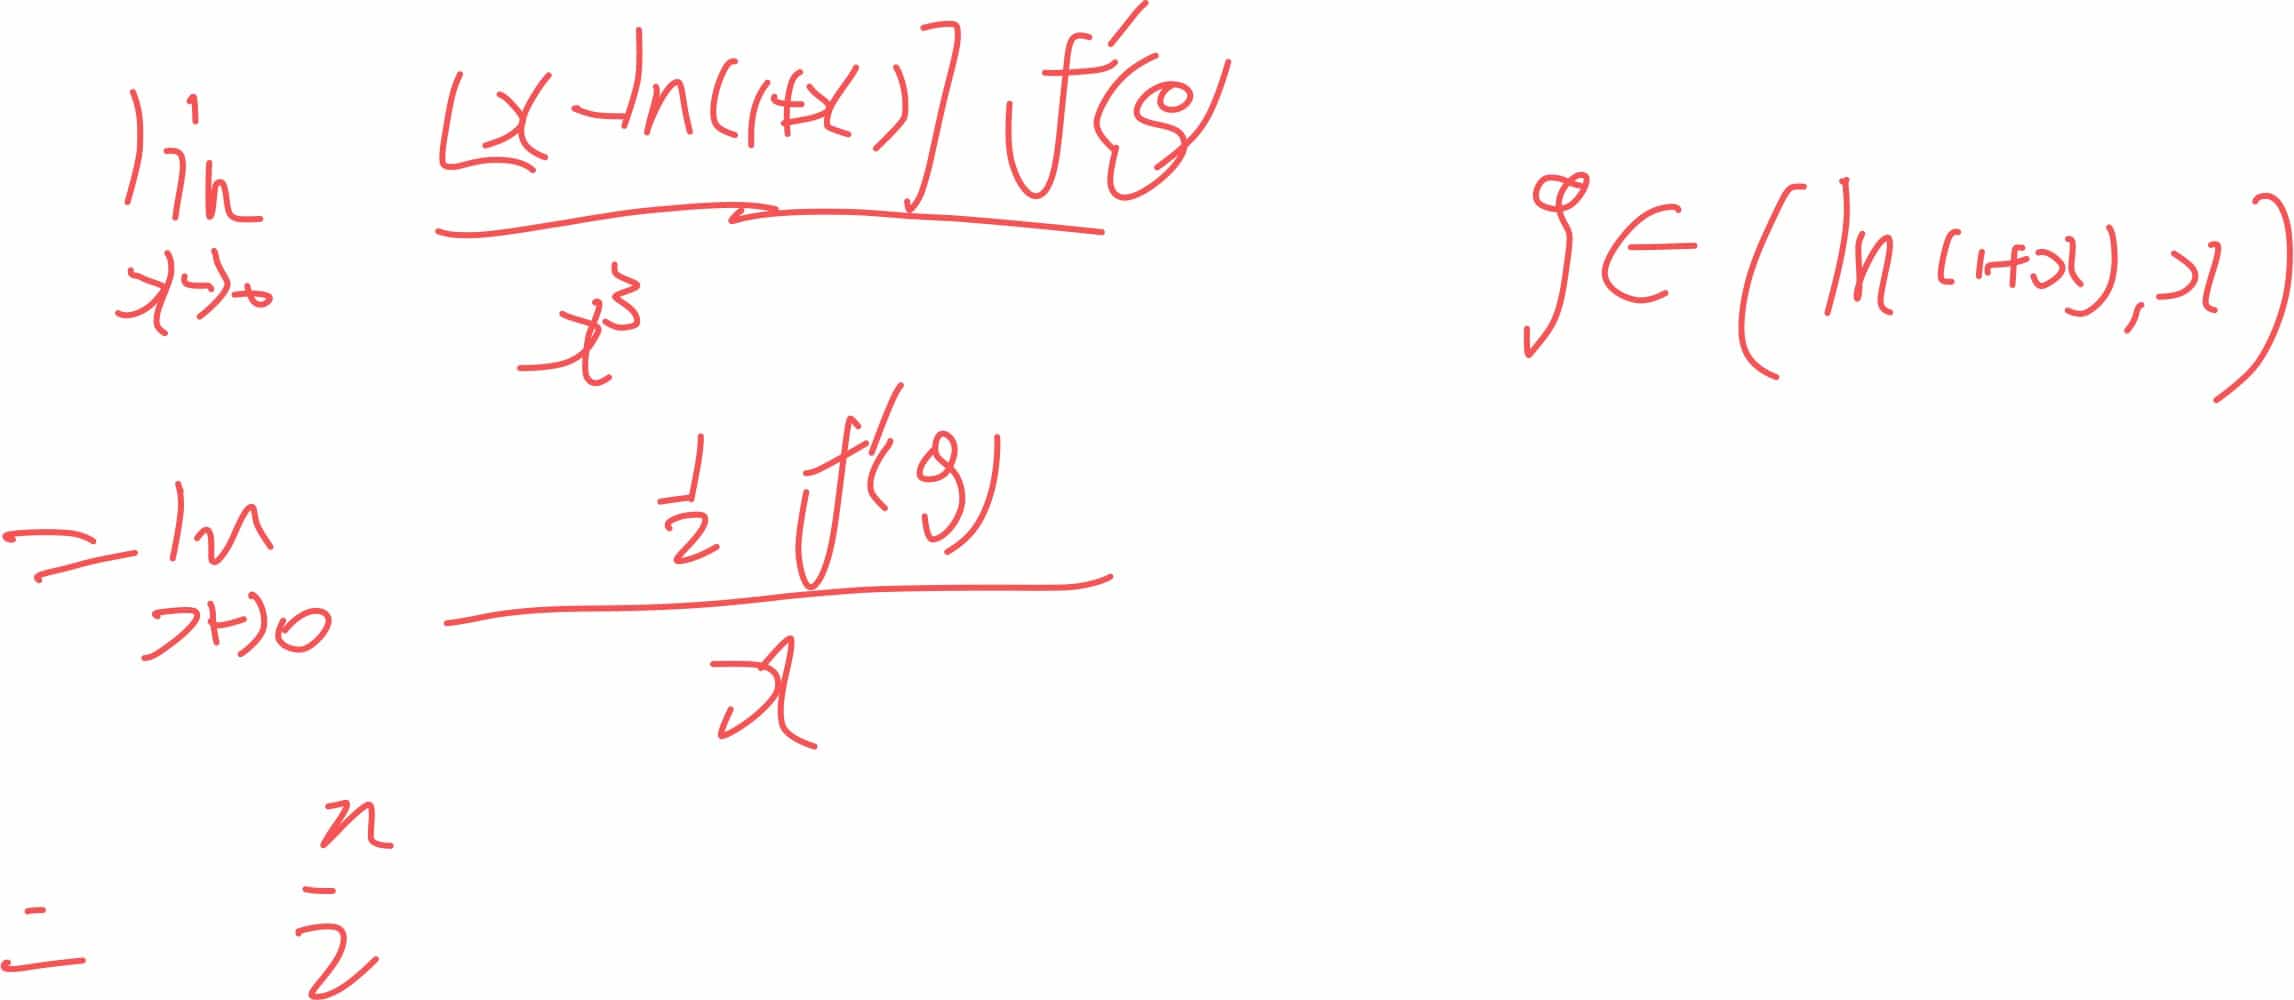 lim x→0 [x-ln(1+x)] f'(ξ) / x³ ξ∈(ln(1+x), x)
= lim x→0 1/2 f'(ξ) / x
= n/2